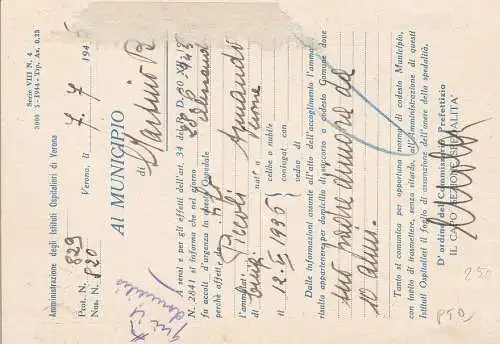 Serie VIII N. 4
3000 - 5-1944 - Tip. Az. 0.25
Amministrazione degli Istituti Ospitalieri di Verona
Prot. N. 829
Nos. N. 820
Verona, li 7. 7 194
Al MUNICIPIO
di
A sensi e per gli effetti dell'art. 34 del R. D. 30 XII 19
N. 2841 si informa che nel giorno
fu accolt d'urgenza in questo Ospedale
perchè affett da
l'ammalat Piccoli Armando
di nat a
il 12. 1935
celibe o nubile
coniugat con
vedov di
Dalle informazioni assunte all'atto dell'accoglimento l'amma-
lato appartenere per domicilio di soccorso a codesto Comune dove
sua madre dimora da
10 anni.
Tanto si comunica per opportuna norma di codesto Municipio,
con invito di trasmettere, senza ritardo, all'Amministrazione di questi
Istituti Ospitalieri il foglio di assunzione dell'onere della spedalità.
D'ordine del Commissario Prefettizio
IL CAPO SEZIONE SPEDALITA'
250